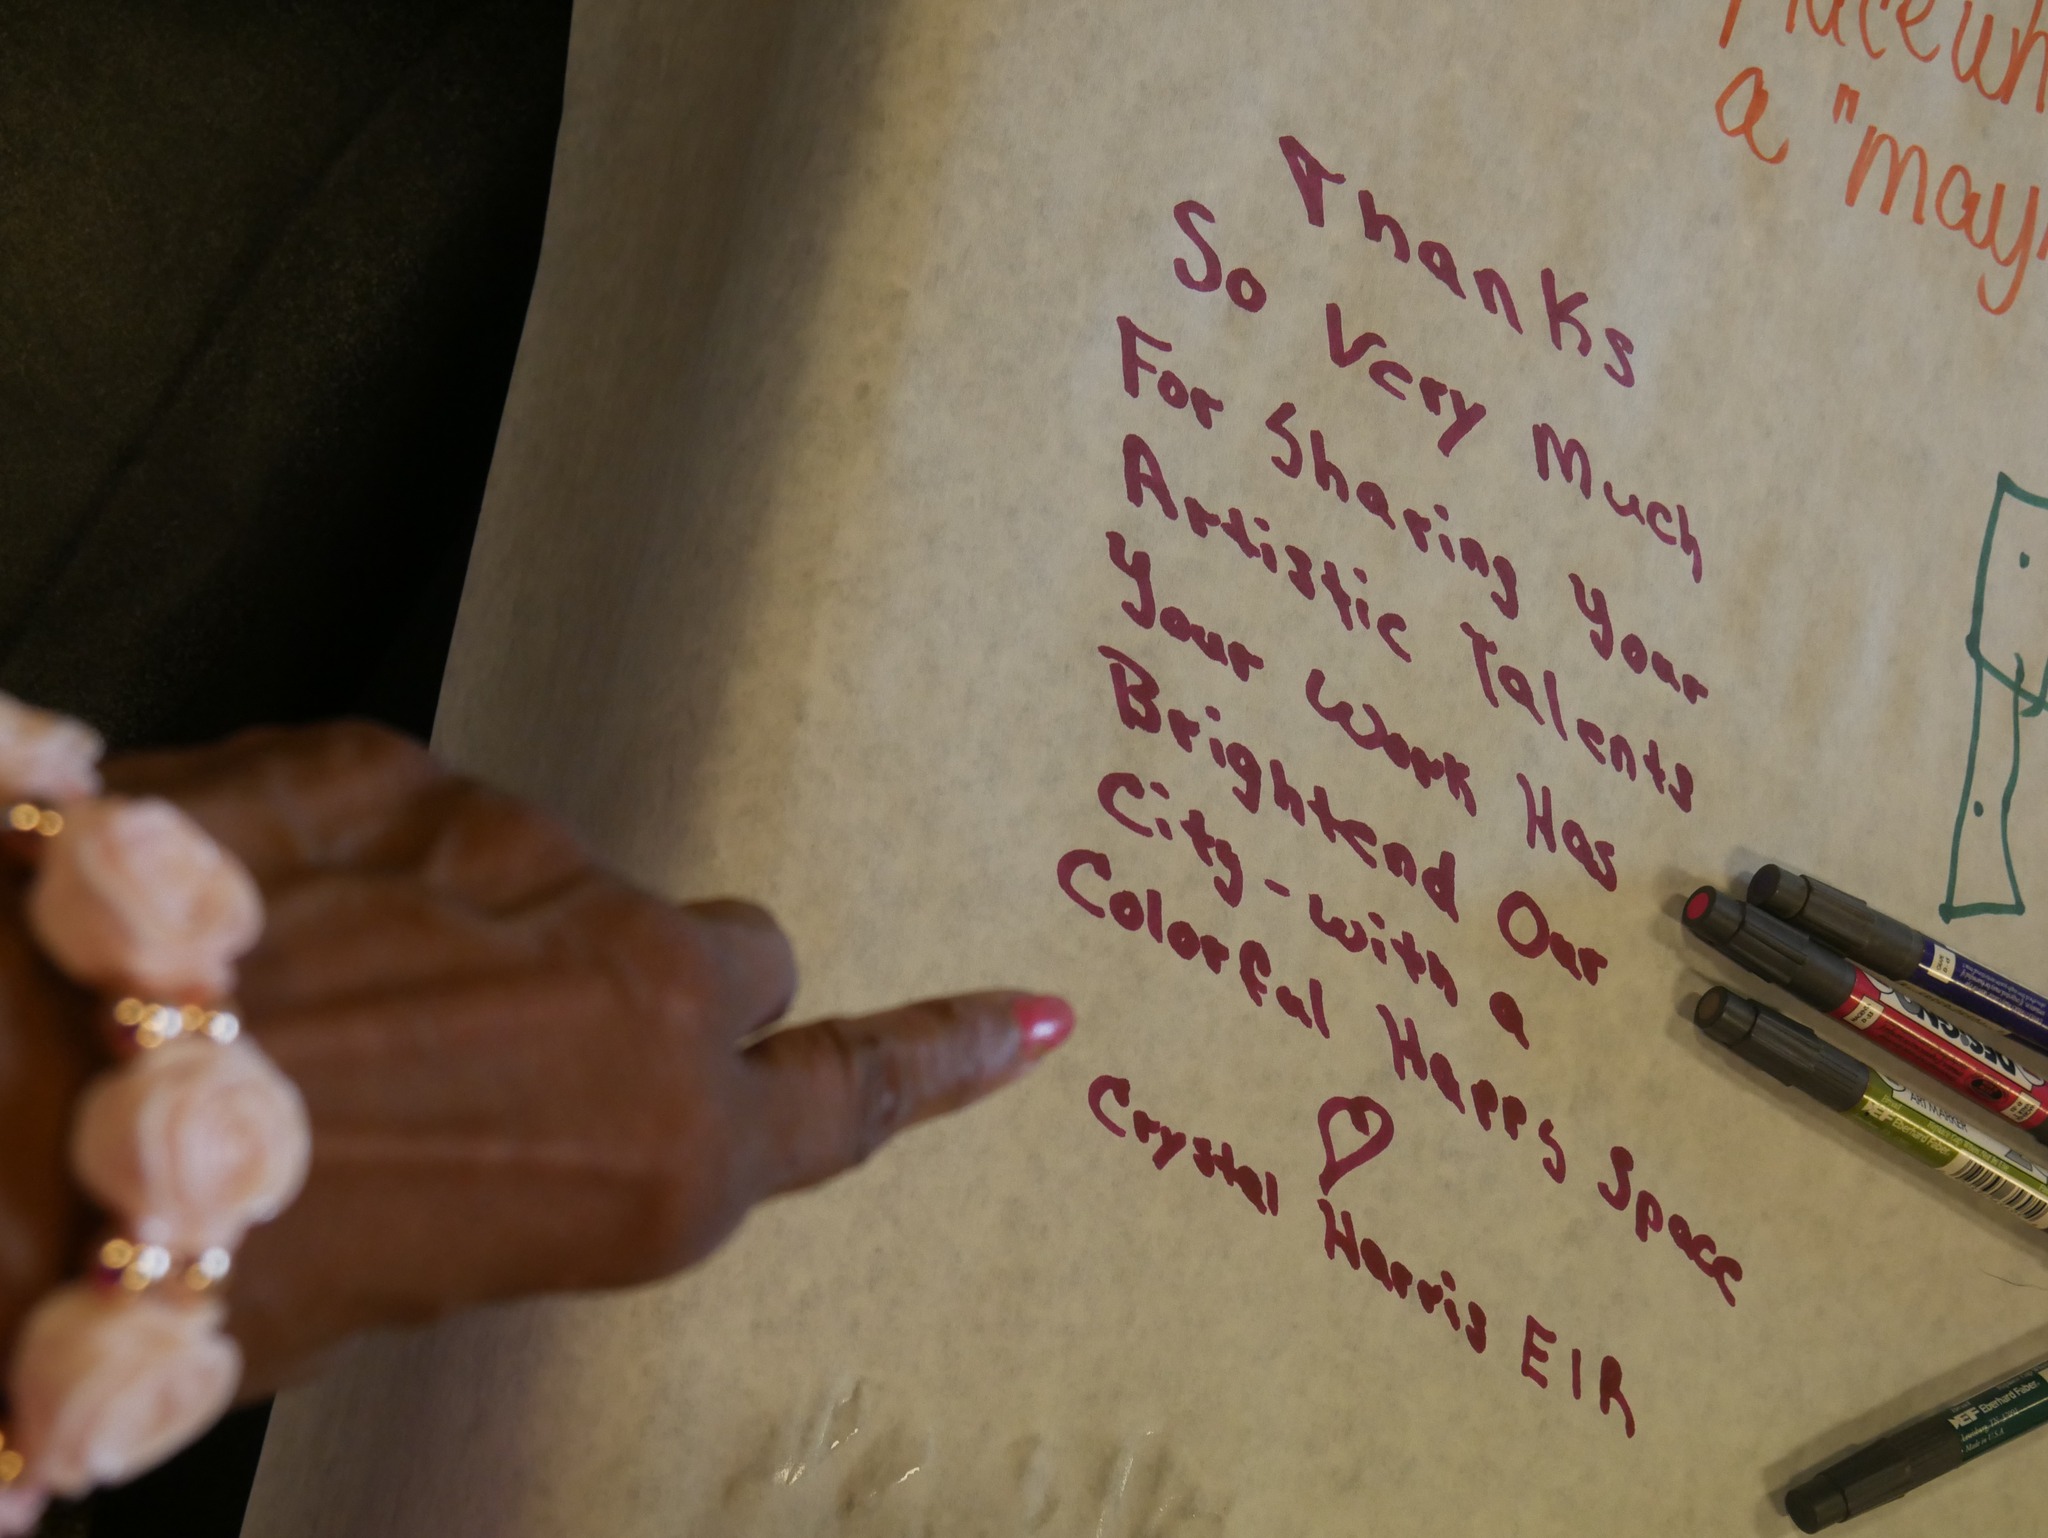 a "may
Thanks
So Very Much
For Sharing Your
Artistic Talents
Your Work Has
Brightend Our
City-with a
Colorful Happy Space
Crystal Harris EIR
DESIGN
ART MARKER
Eberhard Faber
Eberhard Faber
Made in U.S.A.